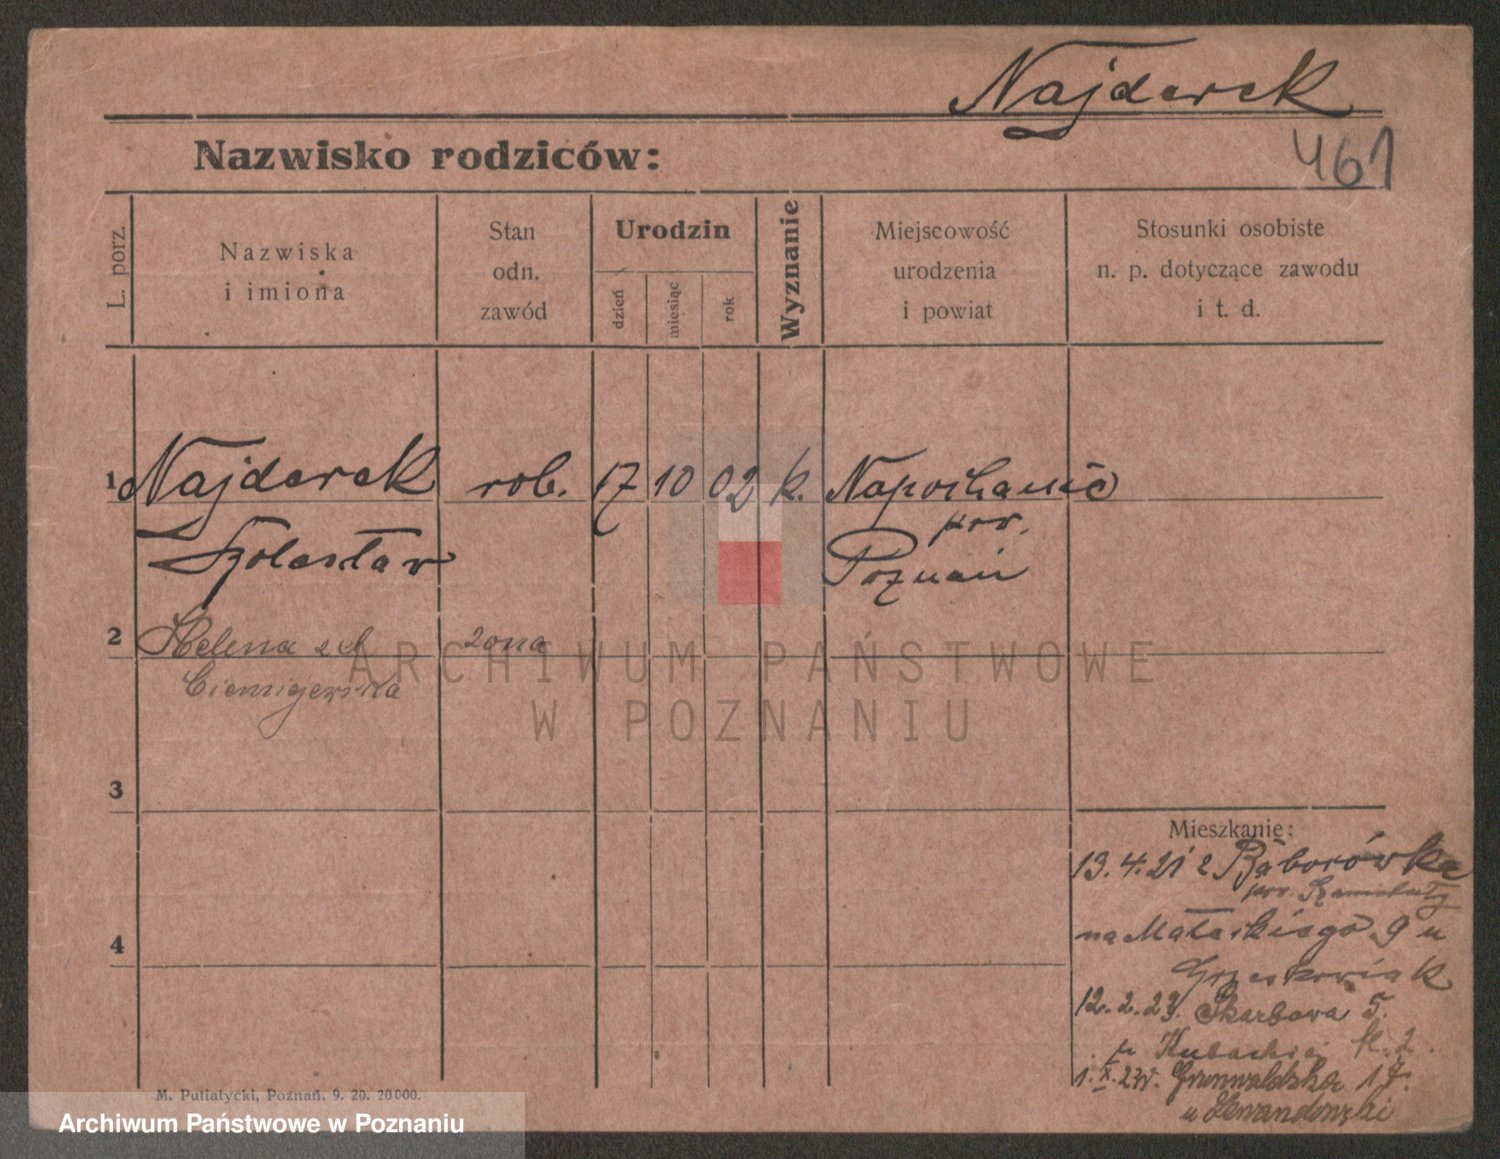 Najderek
461
Nazwisko rodziców:
L. porz.
Nazwiska
i imiona
Stan
odn.
zawód
Urodzin
dzień
miesiąc
rok
Wyznanie
Miejscowość
urodzenia
i powiat
Stosunki osobiste
n. p. dotyczące zawodu
i t. d.
1 Najderek rob. 17 10 02 k.
pow.
Poznań
2 Helena żona
3
4
Mieszkanie:
13.4.21 z Bąborówka
pow. Szamotuły
na 9 u
Grześkowiak
12.2.23. Skarbowa 5.
1. X. 23r. Grunwaldzka 17.
u Lewandowski
M. Putiatycki, Poznań. 9. 20. 20000.
ARCHIWUM PAŃSTWOWE
W POZNANIU
Archiwum Państwowe w Poznaniu